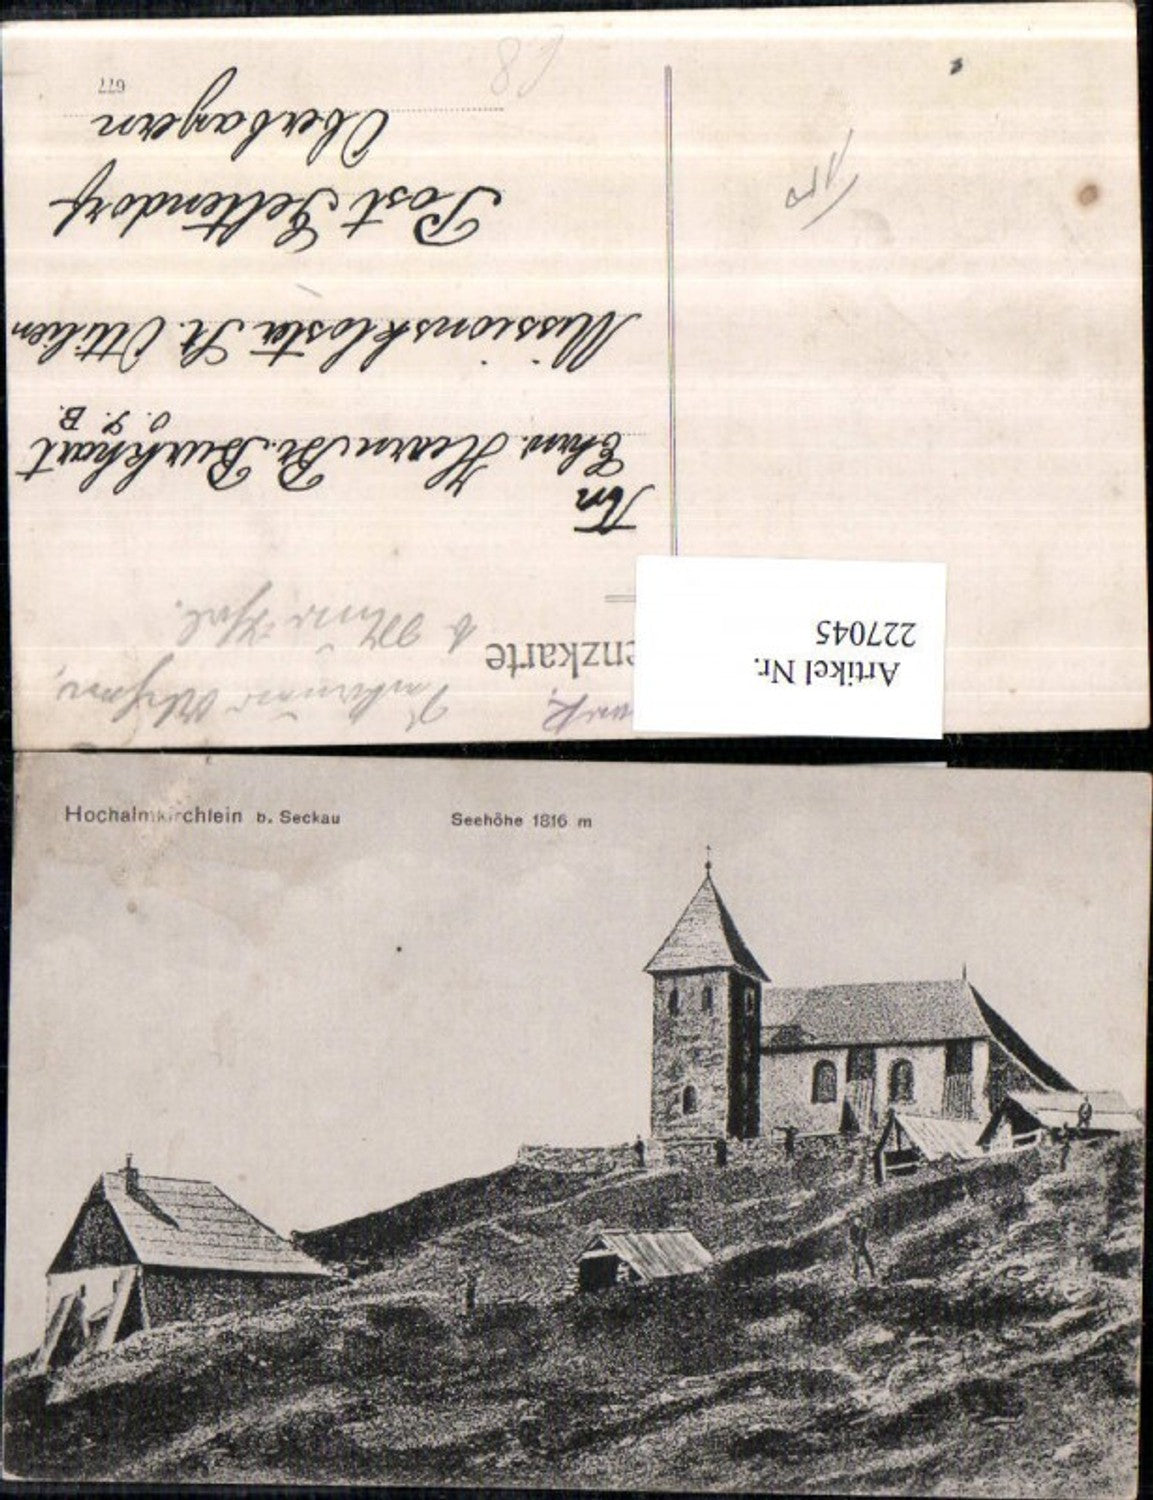 enzkarte
An
Ehrw. Herrn Br. Burkhart
O. S. B.
Missionskloster St. Ottilien
Post Geltendorf
Oberbayern
677
Artikel Nr.
227045
Hochalmkirchlein b. Seckau Seehöhe 1816 m